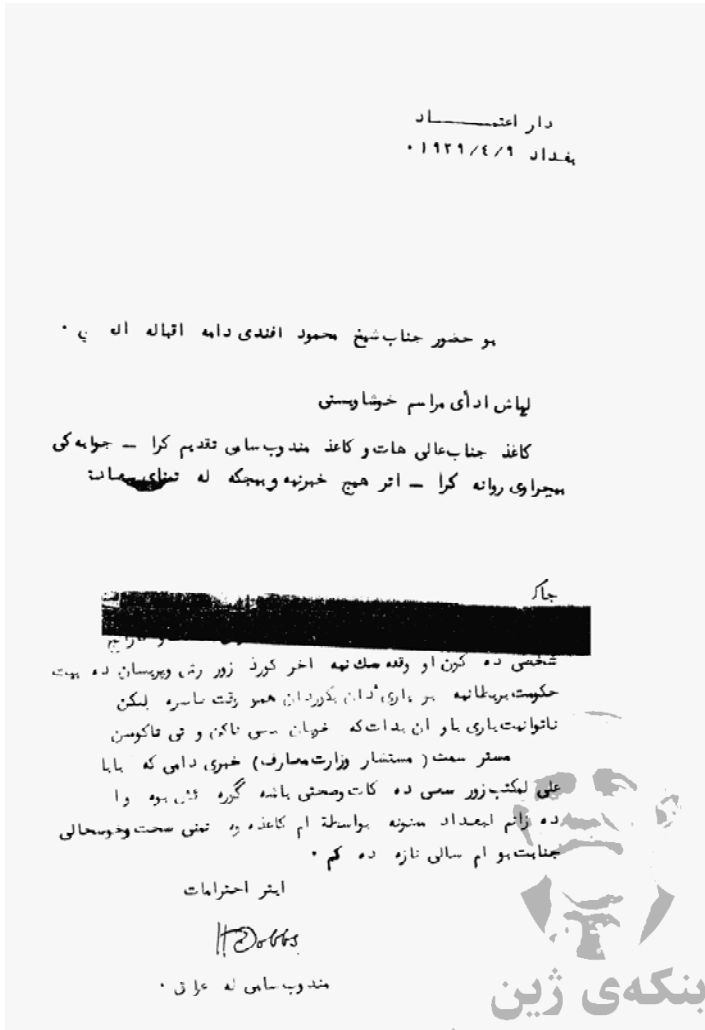 دار اعتمـــــاد
بغداد ١٩٢٩/٤/٩ ٠
بو حضور جناب شيخ محمود افندى دامه اقباله ٠
لپاش ادأى مراسم خوشاويستى
كاغذ جناب عالى هات و كاغذ مندوب سامى تقديم كرا ــ جوابه كى
روانه كرا ــ اتر هيچ خبرنيه و بيجگه له تمناى
جاكـ
شخصى ده كون او وقده نيه اخر كورد زور رش وپريسان ده بيت
حكومت بريطانيه بو يارى دان بكوردان همو وقت حاضره ليكن
ناتوانيت يارى يا و ان بدات كه خويان سعى ناكن و تى ناكوسن
مستر سمث ( مستشار وزارت معارف ) خبرى دامى كه بابا
على لمكتب زور سعى ده كات وصحتى باشه گوره بوه و ا
ده زانم لبغداد ممنونه بواسطة ام كاغذه وه تمنى صحت وخوسحالى
جنابت بو ام سالى تازه ده كم ٠
ايتر احترامات
HDobbs
مندوب سامى له عراق ٠
بنکەی ژین